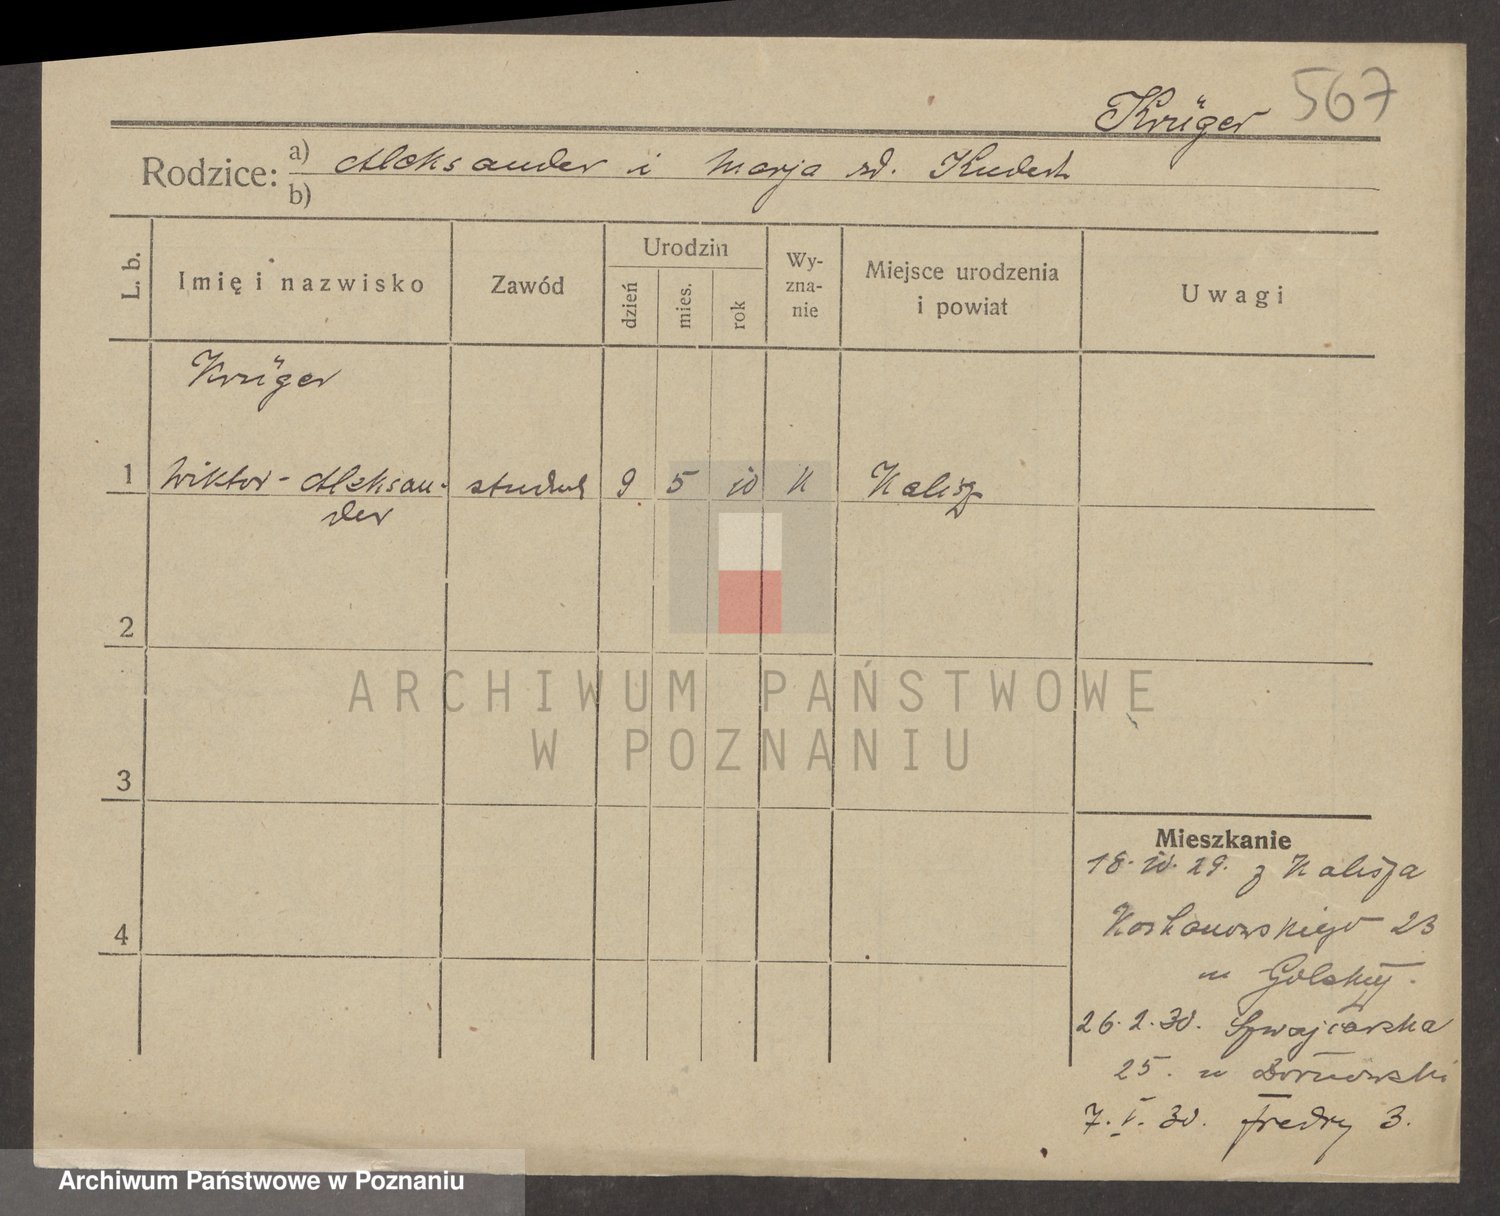 Krüger 567
Rodzice: a) Aleksander i Marja zd. Kudert
b)
L. b. Imię i nazwisko Zawód Urodzin dzień mies. rok Wy-zna-nie Miejsce urodzenia i powiat Uwagi
Krüger
1 Wiktor-Aleksan- student 9 5 10 K Kalisz
der
2
3
4
Mieszkanie
18. 10. 29. z Kalisza
Kochanowskiego 23
u Golskiej.
26. 2. 30. Szwajcarska
25. u
7. V. 30. Fredry 3.
ARCHIWUM PAŃSTWOWE
W POZNANIU
Archiwum Państwowe w Poznaniu